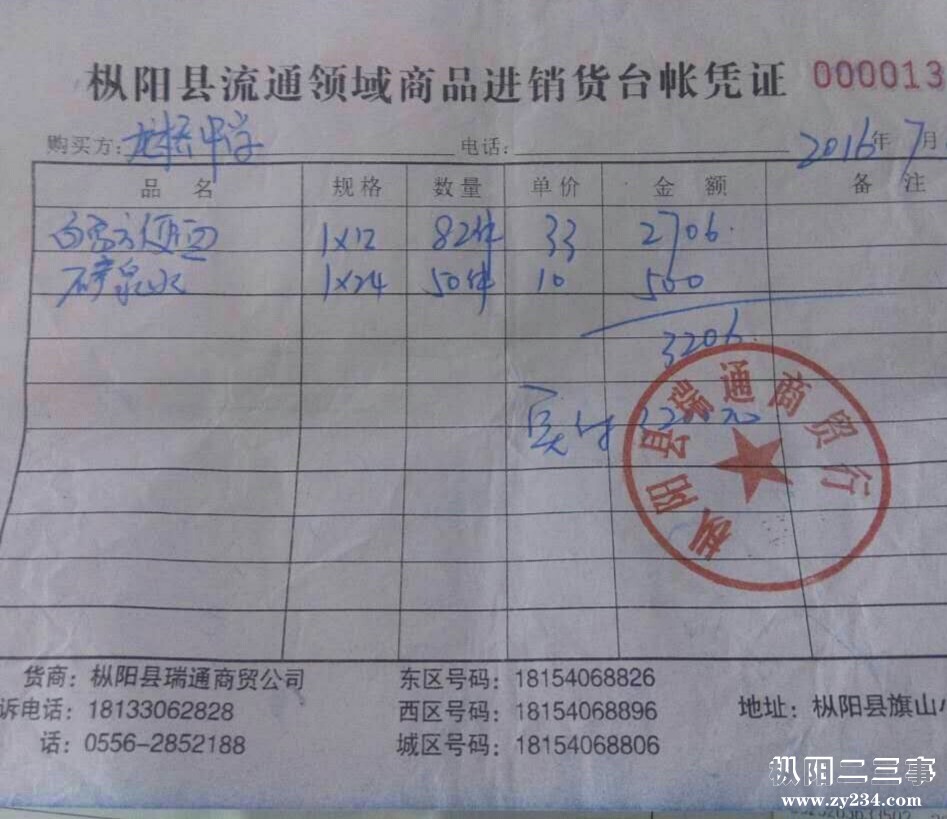 枞阳县流通领域商品进销货台帐凭证 000013
购买方: 中学 电话: 2016年7月
品名 规格 数量 单价 金额 备注
白象方便面 1×12 82件 33 2706.
矿泉水 1×24 50件 10 500
3206.
实付 元
枞阳县瑞通商贸行
货商：枞阳县瑞通商贸公司 东区号码：18154068826
诉电话：18133062828 西区号码：18154068896 地址：枞阳县旗山
话：0556-2852188 城区号码：18154068806
枞阳二三事
www.zy234.com